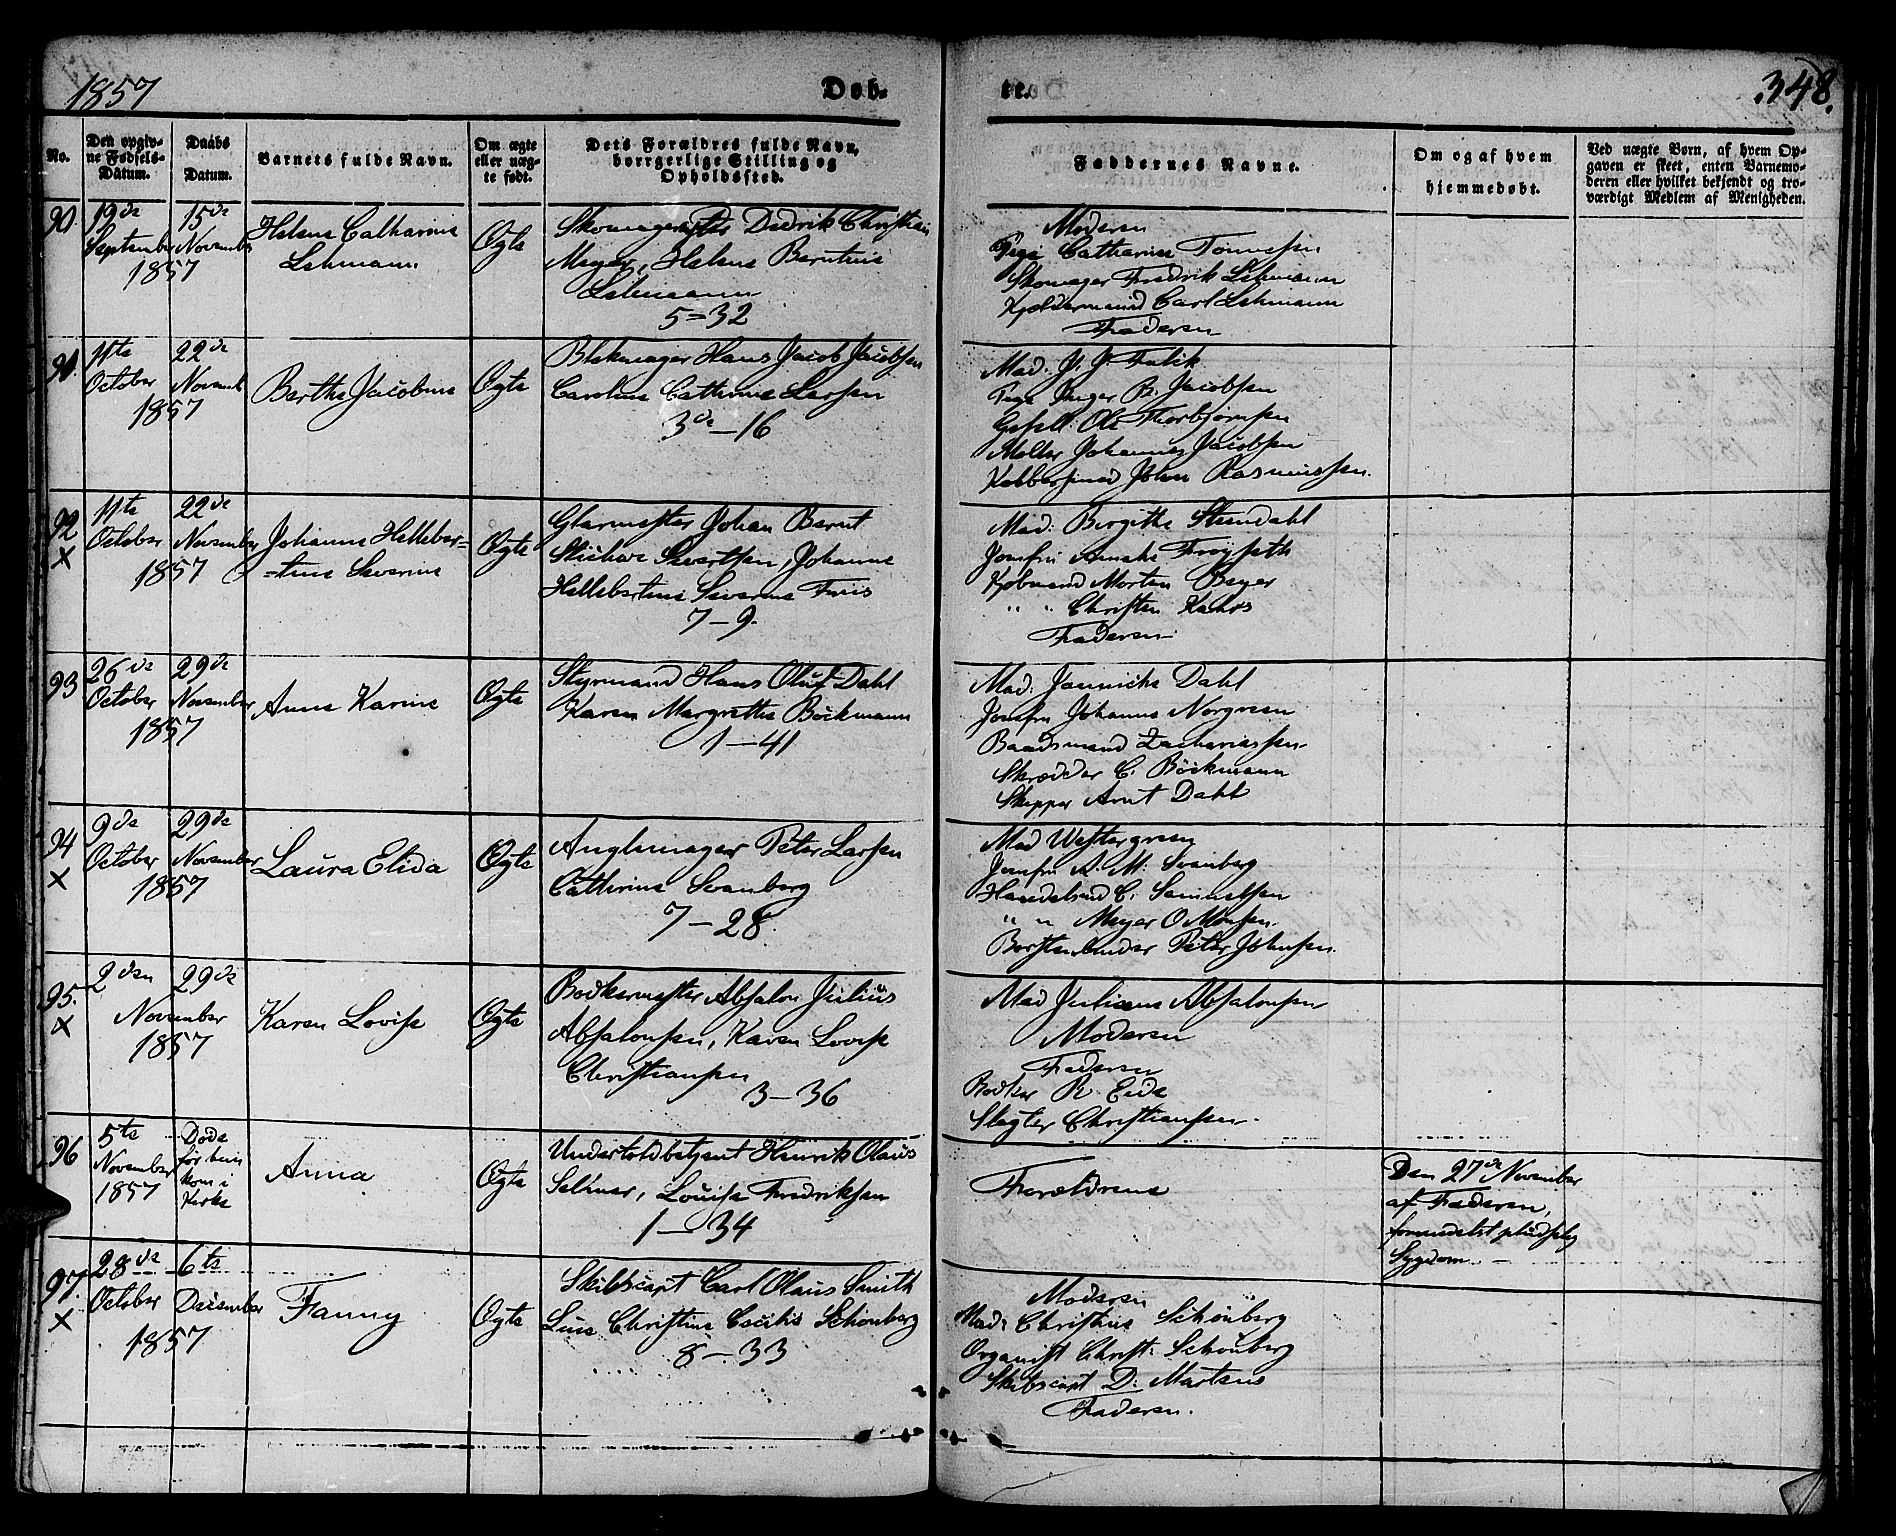 1857
Døb-
te.
348.
No.
Den opgiv-
ne Fødsels-
Datum.
Daabs
Datum.
Barnets fulde Navn.
Om ægte
eller uæg-
te født.
Dets Forældres fulde Navn,
borrgerlige Stilling og
Opholdssted.
Faddernes Navne.
Om og af hvem
hjemmedøbt.
Ved uægte Børn, af hvem Op-
gaven er skeet, enten Barnemo-
deren eller hvilket bekjendt og tro-
værdigt Medlem af Menigheden.
90.
19de
September
1857
15de
November
Helene Catharine
Lehmann
Ægte
Skomagermester Dedrik Christian
Meyer, Helene Berntine
Lehmann
5-32
Moderen
Pige Catharine Tønnesen
Skomager Fredrik Lehmann
Kjeldermand Carl Lehmann
Faderen
91.
11te
October
1857
22de
Novemb
Berthe Jacobine
Ægte
Blokmager Hans Jacob Jacobsen
Caroline Cathrine Larsen
3de-16
Mad: J. J. Falck
Pige Inger B. Jacobsen
Gesell: Ole Thorbjørnsen
Møller Johannes Jacobsen
Kobbersmed Johan Rasmussen.
92
X
11te
October
1857
22de
November
Johanne Helleber=
=tine Severine
Ægte
Glarmester Johan Bernt
Sivertsen, Johanne
Hellebertine Severine Friis
7-9.
Mad: Birgithe Steendahl
Jomfru Amalie Frøyseth
Kjøbmand Morten Beyer
" " Christen Kahrs
Faderen
93
26de
October
1857
29de
November
Anne Karine
Ægte
Styrmand Hans Oluf Dahl
Karen Margrethe Böckmann
1-41
Mad: Jannicke Dahl
Jomfru Johanne Norgreen
Baadsmand Zachariassen
Skrædder C. Böckmann
Skipper Arnt Dahl
94
X
9de
October
1857
29de
November
Laura Elida
Ægte
Anglemager Peter Larsen
Cathrine Svanberg
7-28.
Mad Westergreen
Jomfru A. M. Svanberg
Handelsmd C. Samuelsen
" " Meyer O Monsen
Børstenbinder Peter Johnsen.
95.
X
2den
November
1857
29de
Karen Lovise
Ægte
Bødkermester Absalon Julius
Absalonsen, Karen Lovise
Christiansen
3-36
Mad Juliane Absalonsen
Moderen
Faderen
Bødker R. Eide
Slagter Christiansen.
96
5te
November
1857
Døde
før hun
kom i
Kirke
Anna
Ægte
Undertoldbetjent Henrik Olaus
Selmer, Louise Fredriksen
1-34
Forældrene
Den 27de November
af Faderen,
formedelst pludselig
Sygdom.
97.
X
28de
October
1857
6te
December
Fanny
Ægte
Skibscapt Carl Olaus Smith
Line Christine Cecilie Schönberg
8-33
Moderen
Mad: Christine Schönberg
Organist Christ: Schönberg
Skibscapt D. Martens
Faderen.